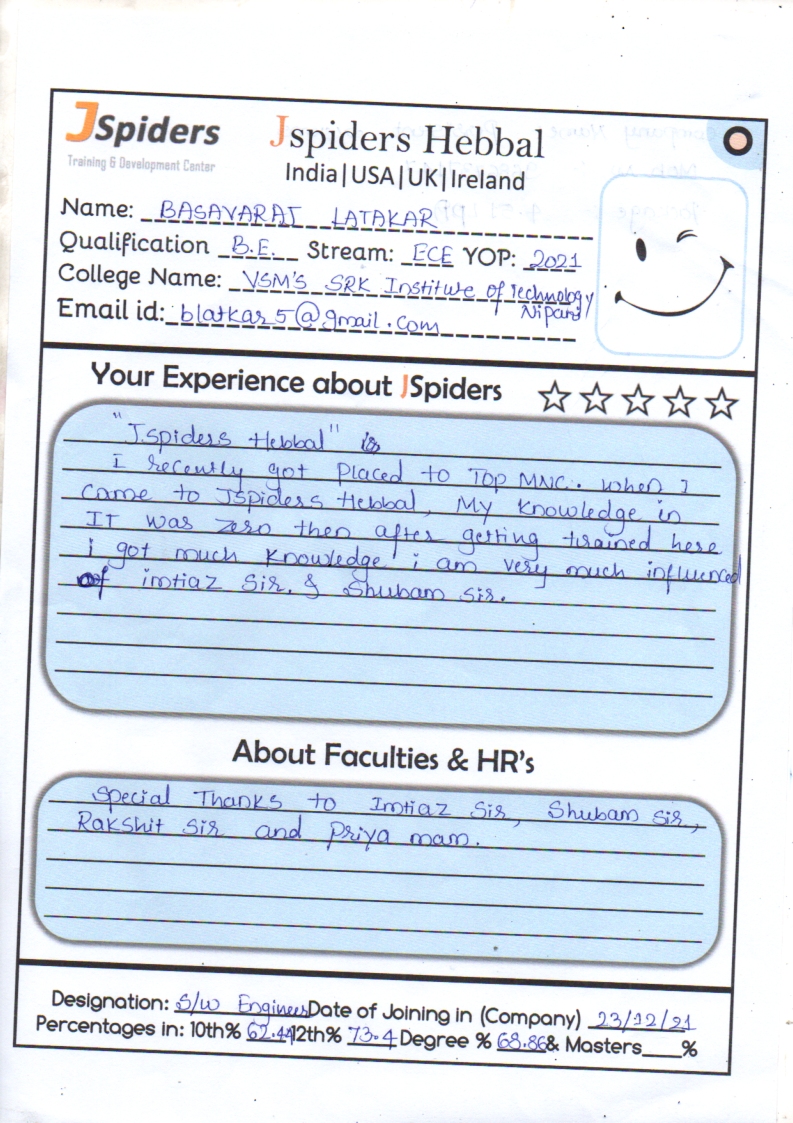 JSpiders
Training & Development Center
Jspiders Hebbal
India|USA|UK|Ireland
Name: BASAVARAJ LATAKAR
Qualification B.E. Stream: ECE YOP: 2021
College Name: VSM'S SRK Institute of Technology
Nipani
Email id: blatkar5@gmail.com
Your Experience about JSpiders
"J.spiders Hebbal" is
I recently got placed to Top MNC. when I
came to Jspiders Hebbal, My knowledge in
IT was zero then after getting trained here
i got much knowledge i am very much influenced
of imtiaz Sir. & Shubam sir.
About Faculties & HR's
Special Thanks to Imtiaz Sir, Shubam sir,
Rakshit sir and Priya mam.
Designation: S/W Engineer Date of Joining in (Company) 23/12/21
Percentages in: 10th% 62.44 12th% 73.4 Degree % 68.86 & Masters____%